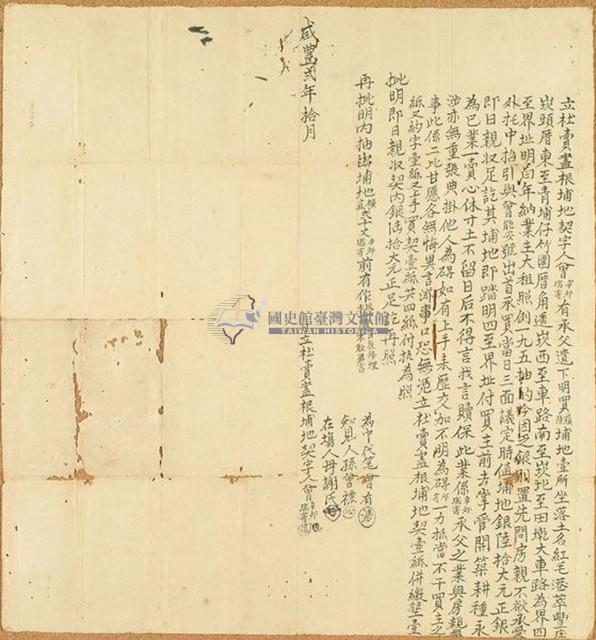 立杜賣盡根埔地契字人曾有承父遺下明買埔地壹所坐落土名紅毛港萃豐庄
崁頭厝東至青埔仔竹圍厝角透崁西至車路南至崁北至田壠大車路為界四
至界址明白年納業主大租照例一九五抽的今因乏銀別置先問房親不欲承受
外托中招引與曾能安號出首承買當日三面議定時值埔地銀陸拾大元正銀
即日親收足訖其埔地即踏明四至界址付買主前去掌管開築耕種永
為己業一賣心休寸土不留日后不得言找言贖保此業係承父之業與房親
涉亦無重張典掛他人為碍如有上手未歷交加不明為碍一力抵當不干買主之
事此係二比甘愿各無悔異言滋事口恐無憑立杜賣盡根埔地契壹紙併繳墾壹
紙又約字壹紙又上手買契壹紙共四紙付執為照
批明即日親收契內銀陸拾大元正足訖再照
再批明內抽出埔地貳十丈前有作
為中代筆曾有
知見人孫曾
在塲人母謝氏
立杜賣盡根埔地契字人曾
咸豐貳年拾月
國史館臺灣文獻館
TAIWAN HISTORICA